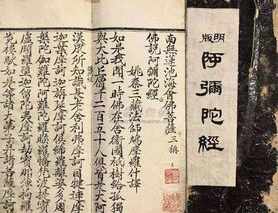 明版
阿彌陀經
南無蓮池海會佛菩薩三稱
佛說阿彌陀經
姚秦三藏法師鳩摩羅什譯
如是我聞一時佛在舍衛國祇樹給孤獨
與大比丘僧千二百五十人俱皆是大阿
漢眾所知識長老舍利弗摩訶目犍連
迦葉摩訶迦旃延摩訶俱絺羅離婆多周
槃陀伽羅難陀阿難陀羅睺羅憍梵波提
盧頗羅墮迦留陀夷摩訶劫賓那薄拘羅
樓馱如是等諸大弟子并諸菩薩摩